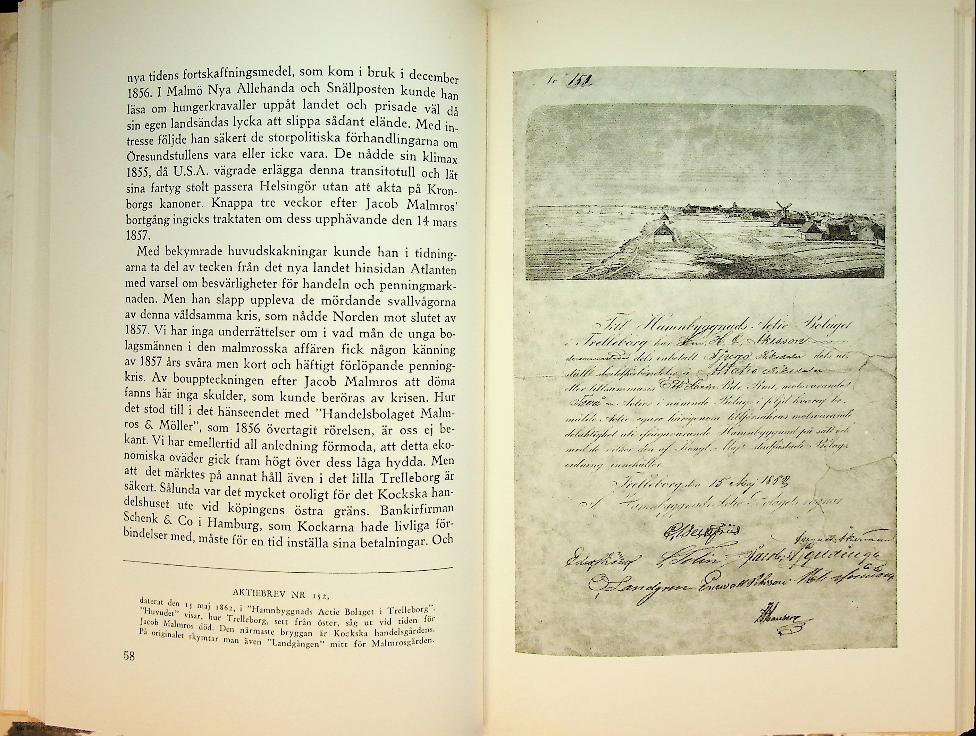 nya tidens fortskaffningsmedel, som kom i bruk i december
1856. I Malmö Nya Allehanda och Snällposten kunde han
läsa om hungerkravaller uppåt landet och prisade väl då
sin egen landsändas lycka att slippa sådant elände. Med in-
tresse följde han säkert de storpolitiska förhandlingarna om
Öresundstullens vara eller icke vara. De nådde sin klimax
1855, då U.S.A. vägrade erlägga denna transitotull och lät
sina fartyg stolt passera Helsingör utan att akta på Kron-
borgs kanoner. Knappa tre veckor efter Jacob Malmros'
bortgång ingicks traktaten om dess upphävande den 14 mars
1857.
Med bekymrade huvudskakningar kunde han i tidning-
arna ta del av tecken från det nya landet hinsidan Atlanten
med varsel om besvärligheter för handeln och penningmark-
naden. Men han slapp uppleva de mördande svallvågorna
av denna våldsamma kris, som nådde Norden mot slutet av
1857. Vi har inga underrättelser om i vad mån de unga bo-
lagsmännen i den malmrosska affären fick någon känning
av 1857 års svåra men kort och häftigt förlöpande penning-
kris. Av bouppteckningen efter Jacob Malmros att döma
fanns här inga skulder, som kunde beröras av krisen. Hur
det stod till i det hänseendet med "Handelsbolaget Malm-
ros & Möller", som 1856 övertagit rörelsen, är oss ej be-
kant. Vi har emellertid all anledning förmoda, att detta eko-
nomiska oväder gick fram högt över dess låga hydda. Men
att det märktes på annat håll även i det lilla Trelleborg är
säkert. Sålunda var det mycket oroligt för det Kockska han-
delshuset ute vid köpingens östra gräns. Bankirfirman
Schenk & Co i Hamburg, som Kockarna hade livliga för-
bindelser med, måste för en tid inställa sina betalningar. Och
AKTIEBREV NR 152,
daterat den 15 maj 1862, i "Hamnbyggnads Actie Bolaget i Trelleborg".
"Huvudet" visar, hur Trelleborg, sett från öster, såg ut vid tiden för
Jacob Malmros död. Den närmaste bryggan är Kockska handelsgårdens.
På originalet skymtar man även "Landgången" mitt för Malmrosgården.
58
152.
Till Hamnbyggnads Actie Bolaget
i Trelleborg har
dels enkelt Tjugo Riksdaler dels
Actier i nämnde Bolag
Hamnbyggnad på sätt och
Bolags
ordning innehåller
Trelleborg den 15 Maj
Hamnbyggnads Actie Bolagets vägnar